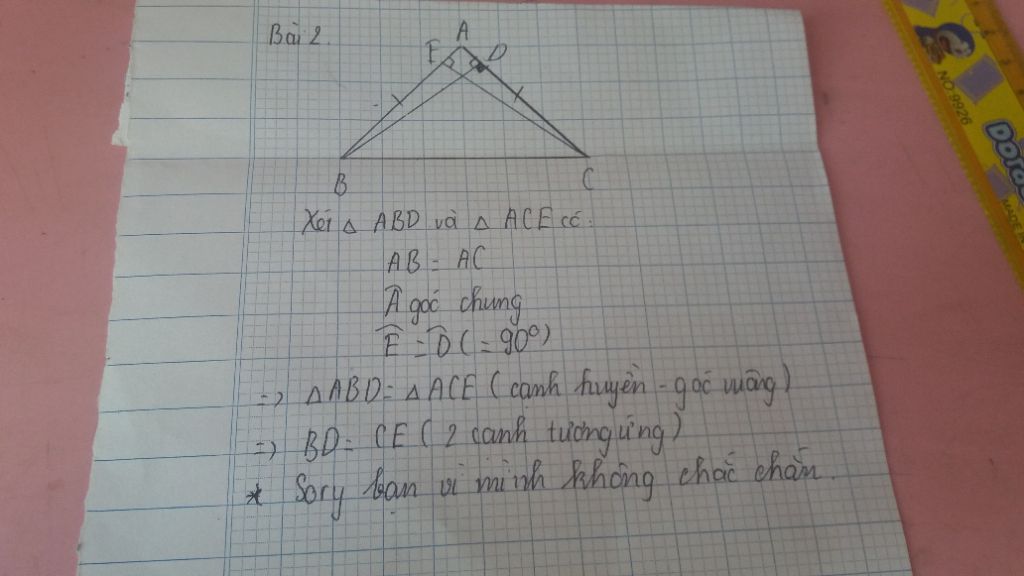 Bài 2.
A
E D
B C
Xét △ ABD và △ ACE có:
AB = AC
Â góc chung
Ê = D̂ (= 90°)
=> △ABD = △ACE (cạnh huyền - góc vuông)
=> BD = CE (2 cạnh tương ứng)
* Sory bạn vì mình không chắc chắn.
NO:9926
Doro